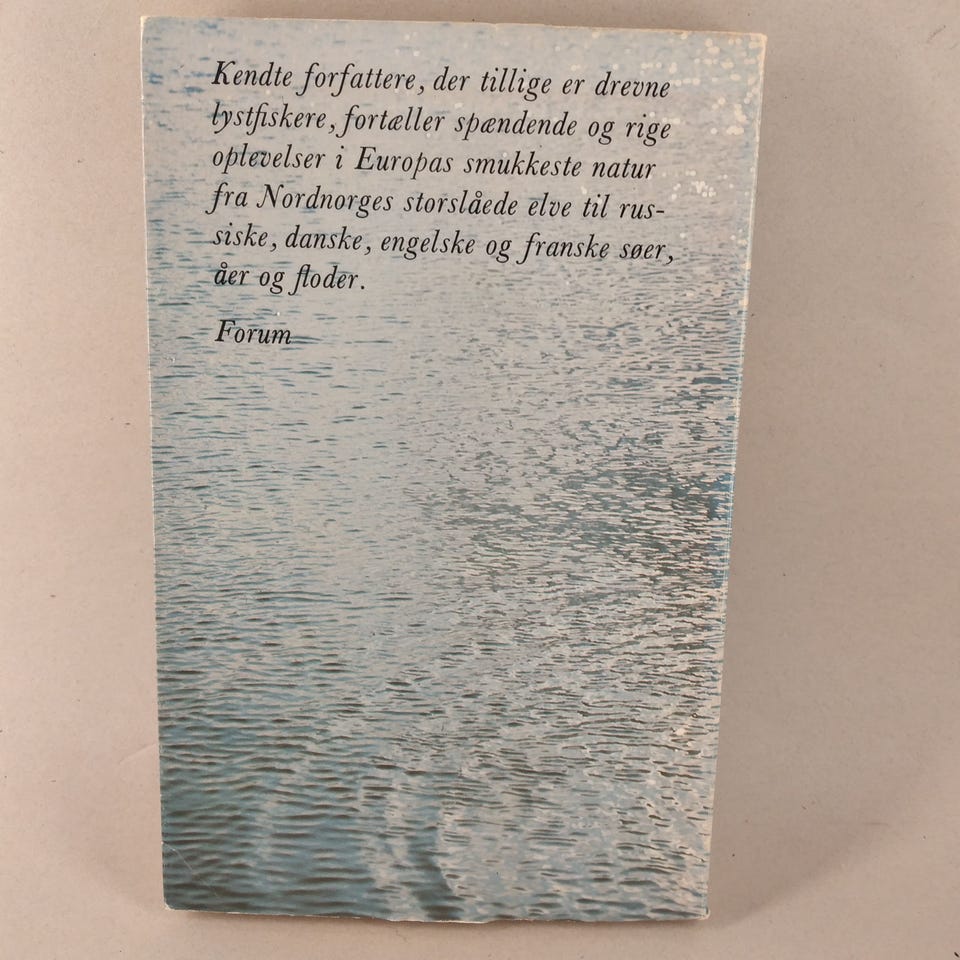 Kendte forfattere, der tillige er drevne
lystfiskere, fortæller spændende og rige
oplevelser i Europas smukkeste natur
fra Nordnorges storslåede elve til rus-
siske, danske, engelske og franske søer,
åer og floder.
Forum